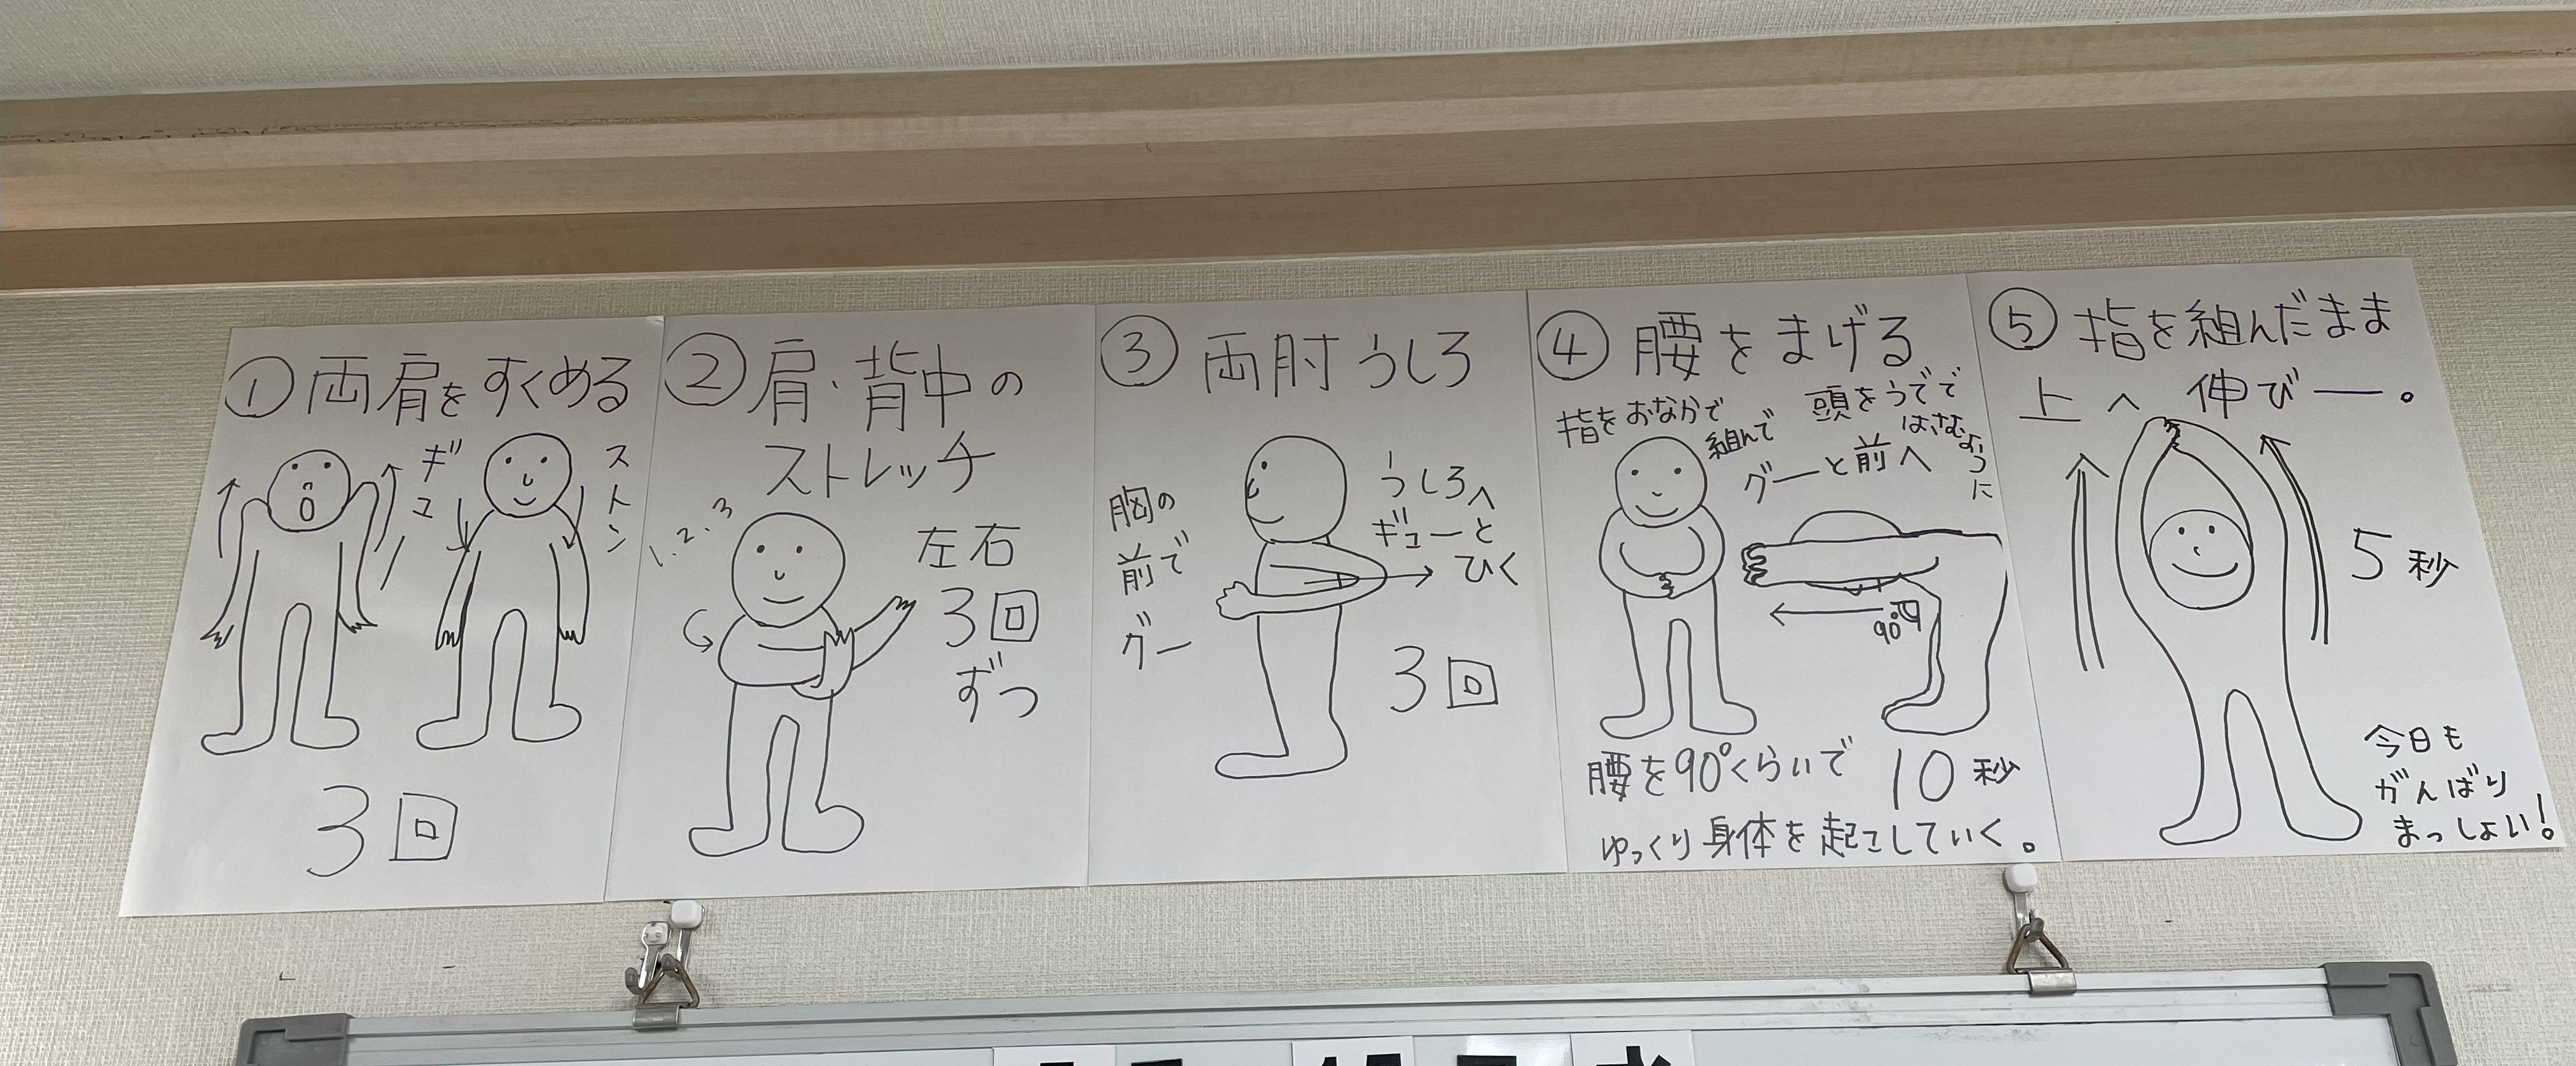 ① 両肩をすくめる
ギュー
ストン
3回
② 肩、背中の
ストレッチ
1、2、3
左右
3回
ずつ
③ 両肘うしろ
胸の
前で
グー
うしろへ
ギューと
ひく
3回
④ 腰をまげる
指をおなかで
組んで
頭をうでで
はさむように
グーと前へ
90°
腰を90°くらいで 10秒
ゆっくり身体を起こしていく。
⑤ 指を組んだまま
上へ 伸びー。
5秒
今日も
がんばり
まっしょい!